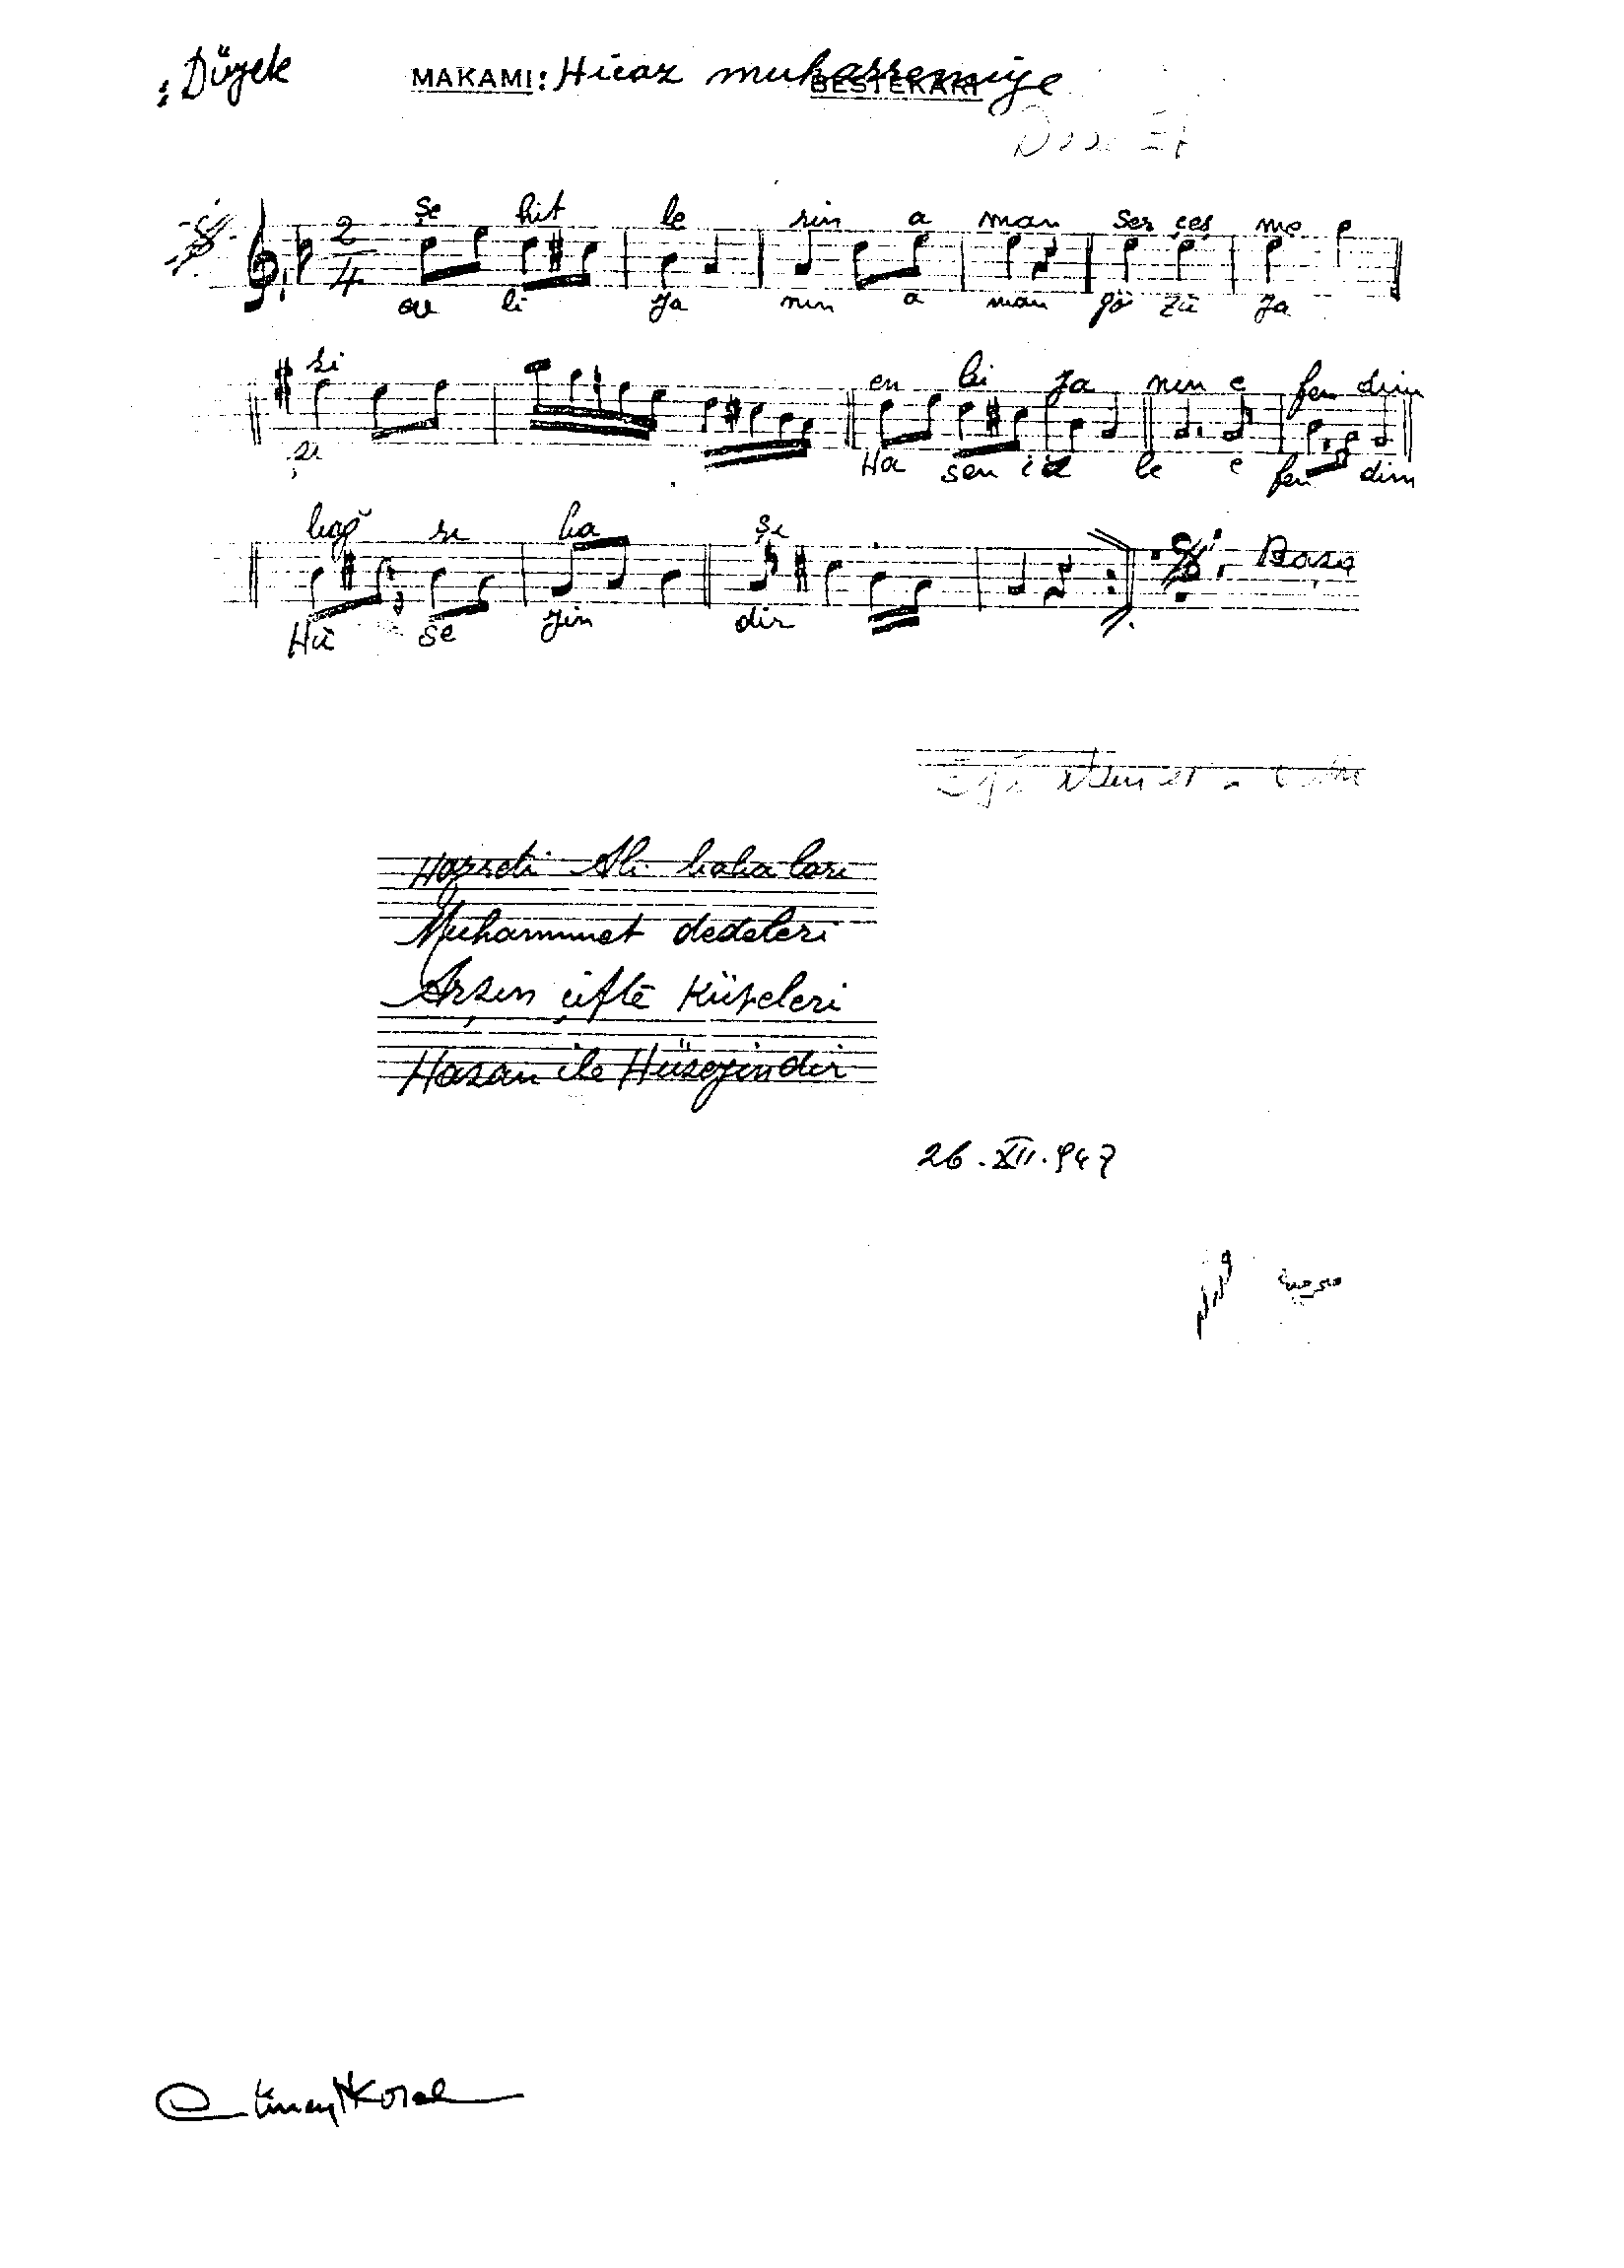 : Düyek MAKAMI: Hicaz muharremiye BESTEKARI
2/4
Şe hit le rin a man Ser çeş me
ev li ya nın a man gö zü ya
si en bi ya nın e fen dim
şı Ha san i le e fen dim
bağ rı ba şı Başa
Hü se yin dir
Hazreti Ali babaları
Muhammet dedeleri
Arşın çifte Küpeleri
Hasan ile Hüseyindir
26.XII.947
Cüneyt Kosal